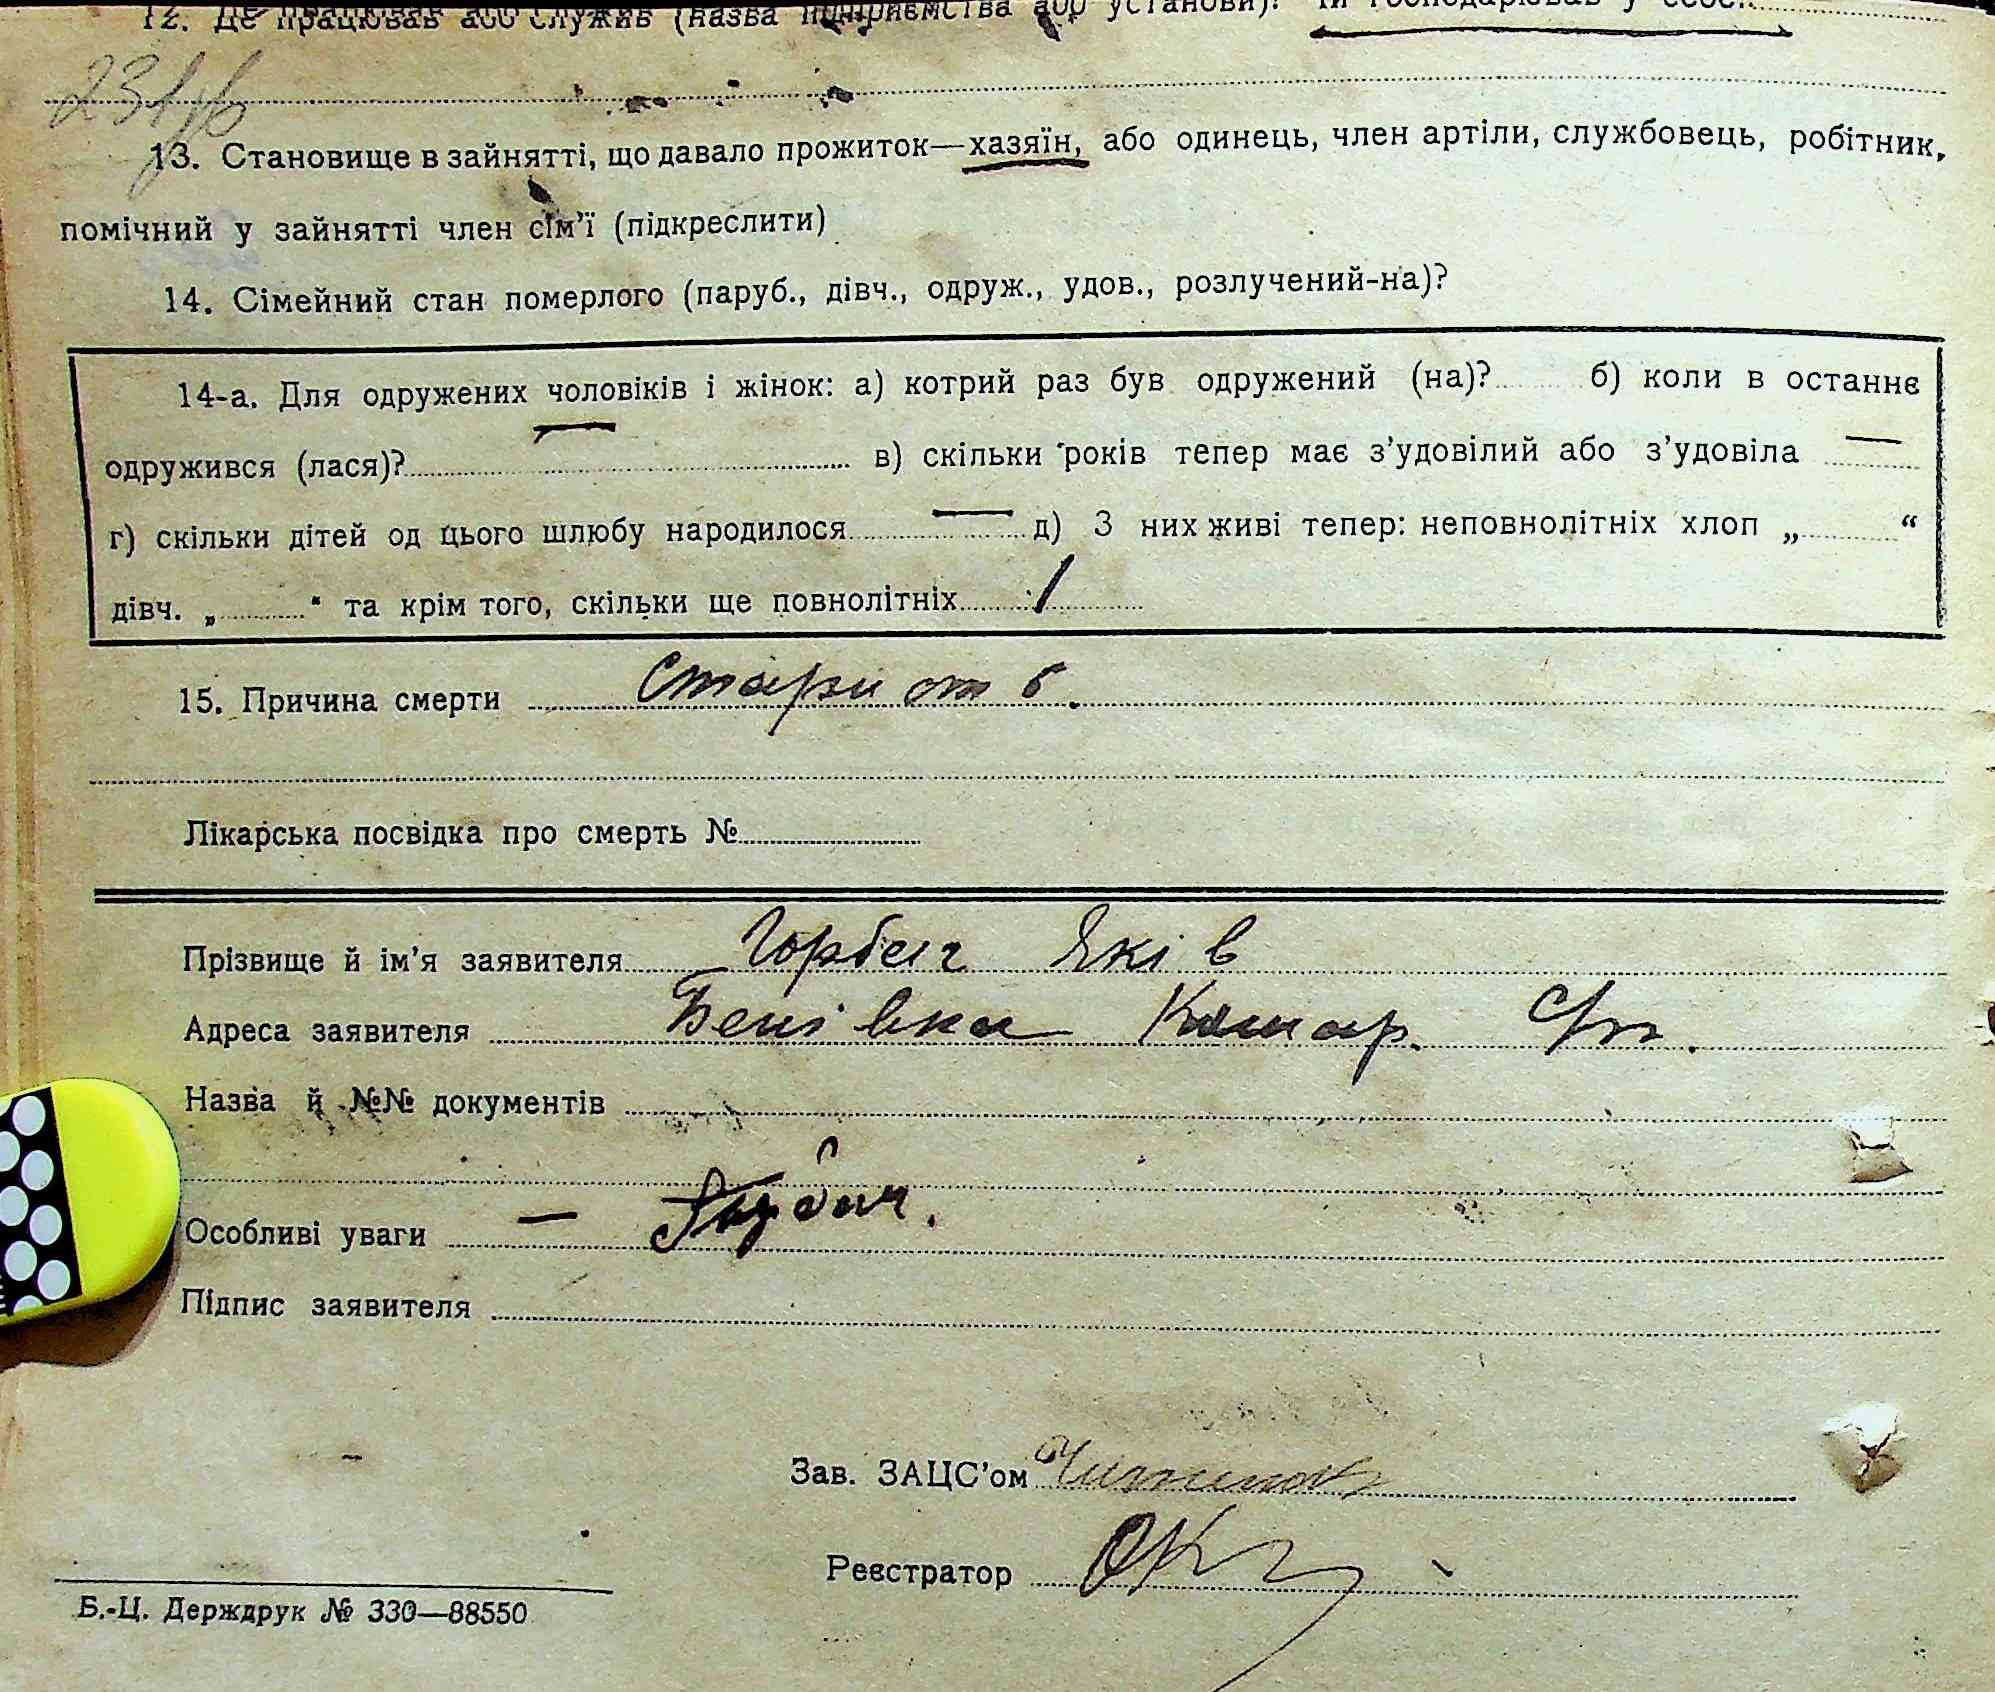 12. Де працював або служив (назва підприємства або установи)? Чи господарював у себе?
13. Становище в зайнятті, що давало прожиток—хазяїн, або одинець, член артіли, службовець, робітник,
помічний у зайнятті член сім'ї (підкреслити)
14. Сімейний стан померлого (паруб., дівч., одруж., удов., розлучений-на)?
14-а. Для одружених чоловіків і жінок: а) котрий раз був одружений (на)? б) коли в останнє
одружився (лася)? — в) скільки років тепер має з'удовілий або з'удовіла —
г) скільки дітей од цього шлюбу народилося — д) З них живі тепер: неповнолітніх хлоп „ “
дівч. „ “ та крім того, скільки ще повнолітніх /
15. Причина смерти
Лікарська посвідка про смерть №
Прізвище й ім'я заявителя Горбач Яків
Адреса заявителя
Назва й №№ документів
Особливі уваги —
Підпис заявителя
Зав. ЗАЦС'ом
Реєстратор
Б.-Ц. Держдрук № 330—88550